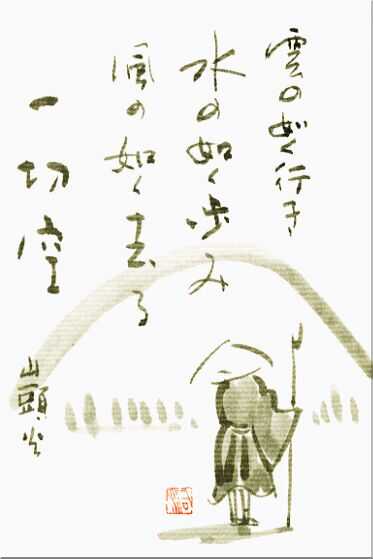 雲の如く行き
水の如く歩み
風の如く去る
一切空
山頭火